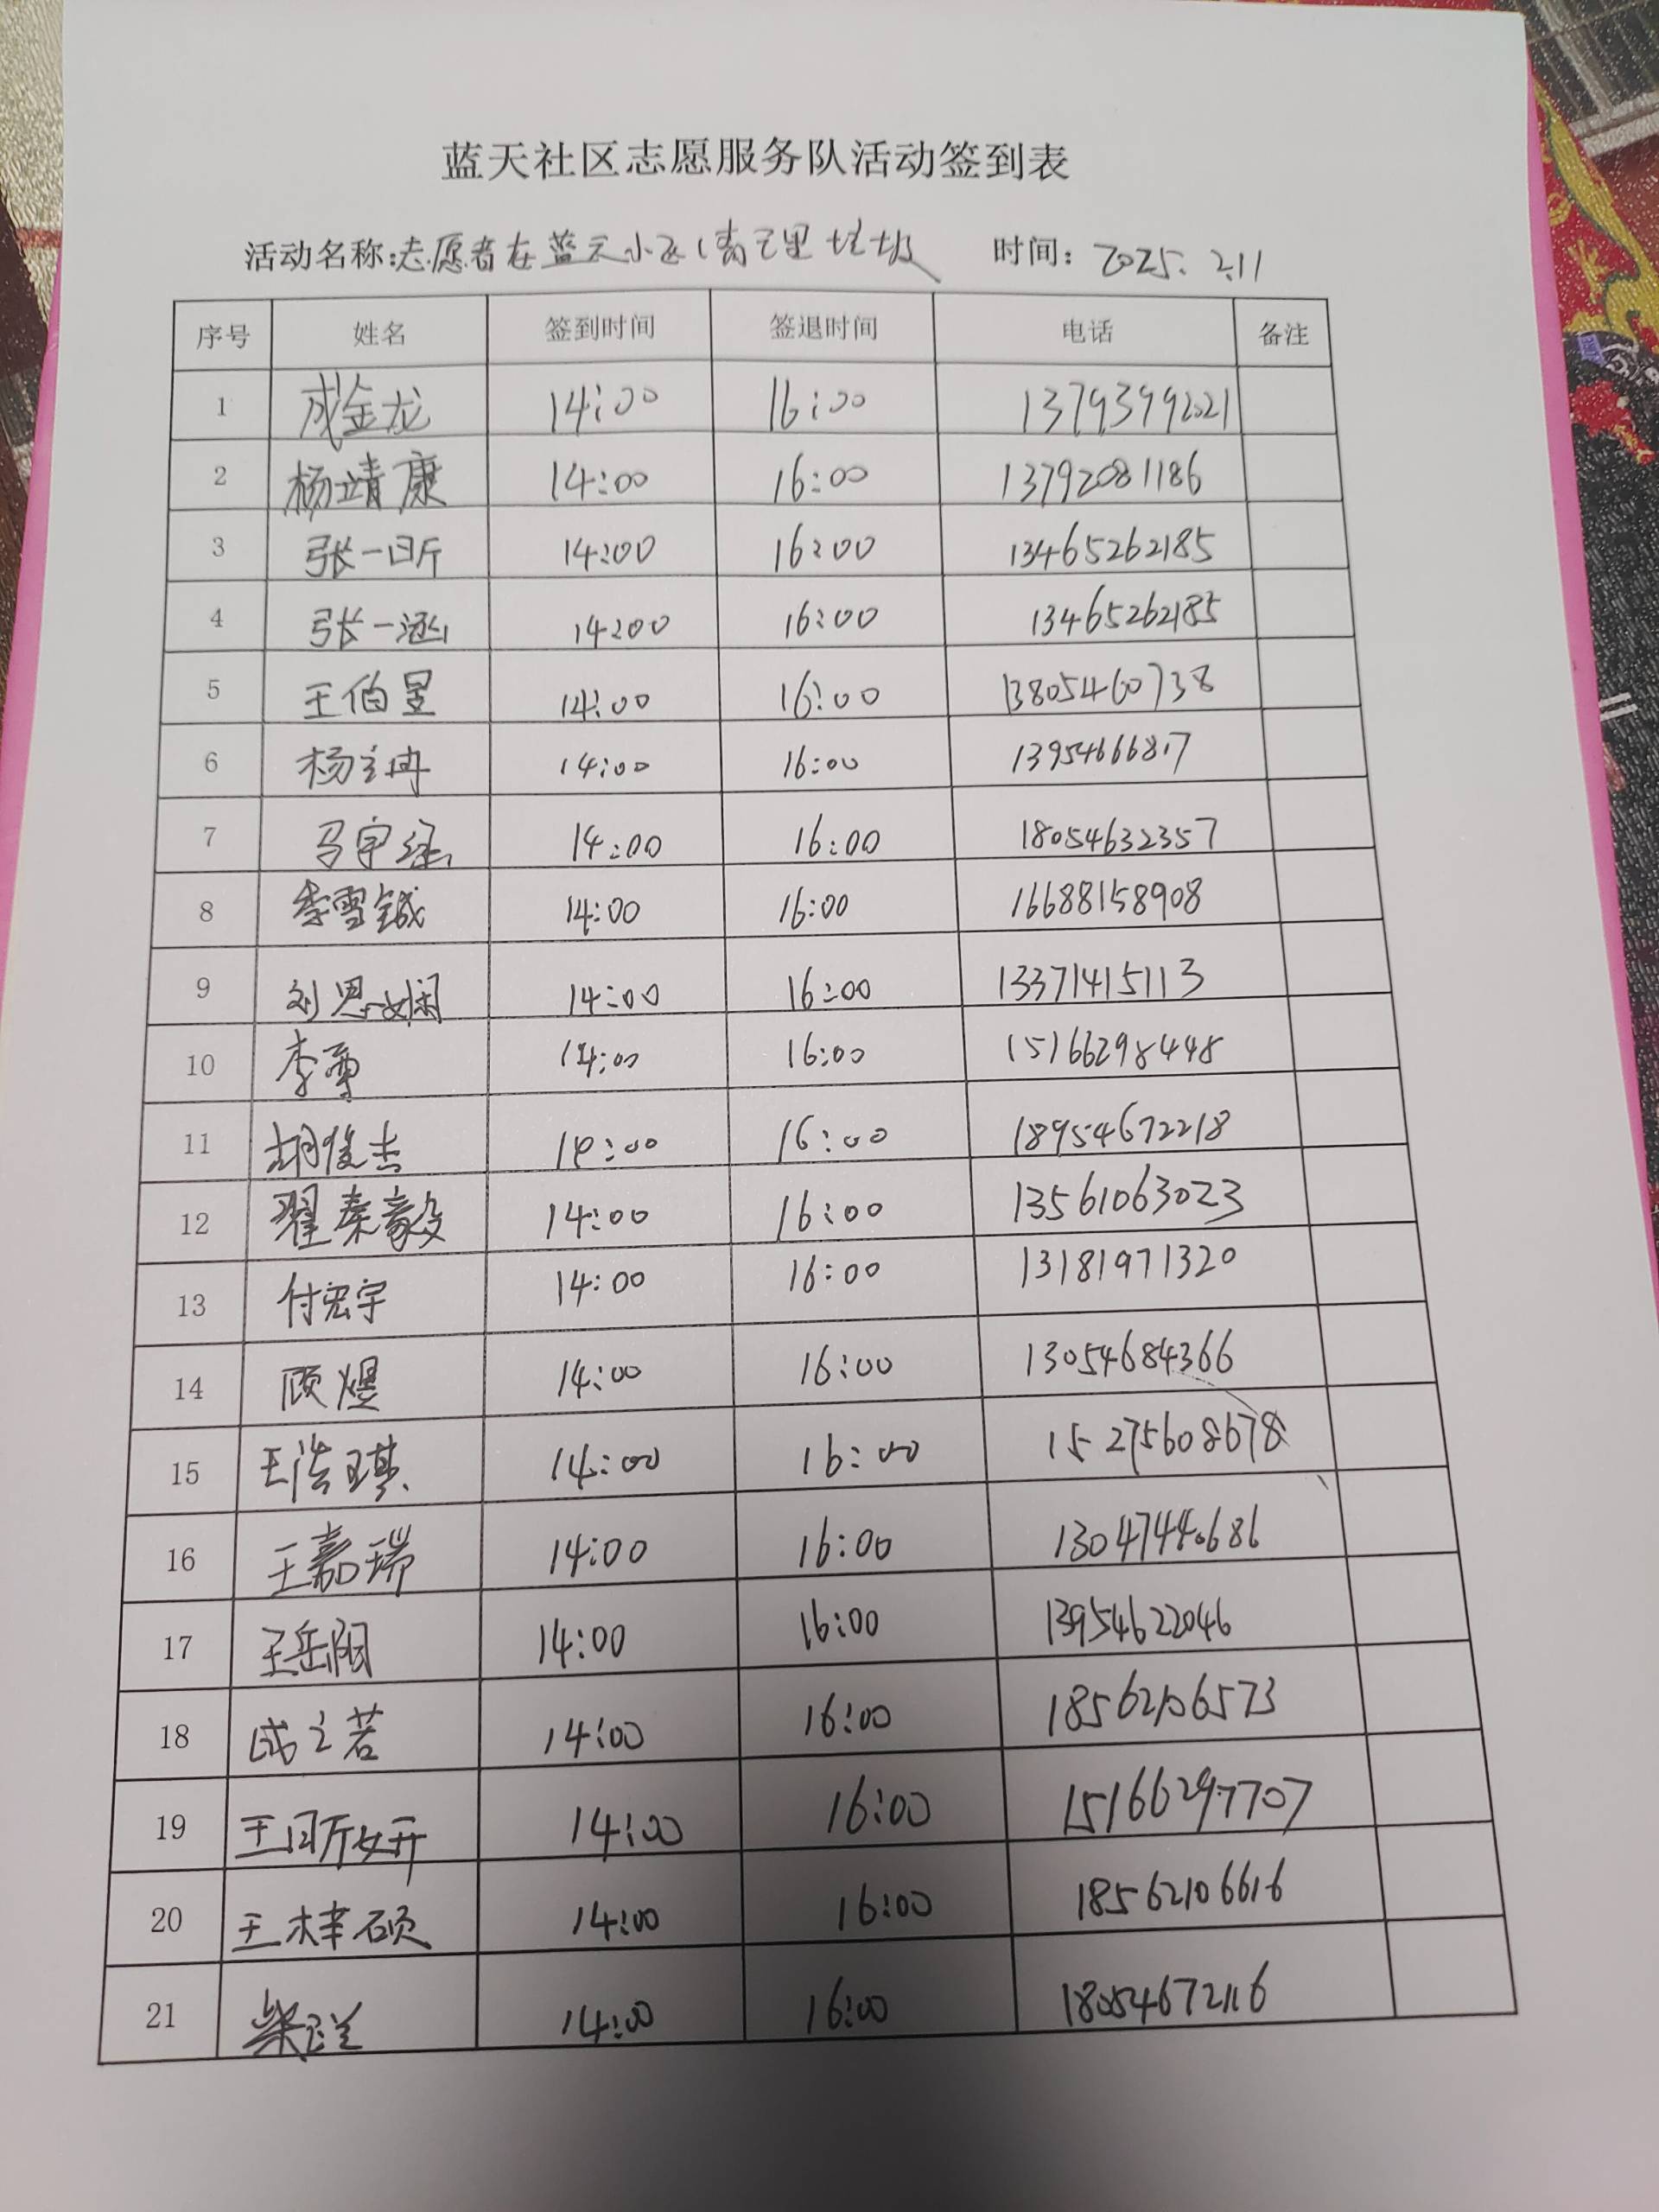 蓝天社区志愿服务队活动签到表
活动名称:志愿者在蓝天小区清理垃圾 时间: 2025.2.11
序号 姓名 签到时间 签退时间 电话 备注
1 成金龙 14:00 16:00 13793992021
2 杨靖康 14:00 16:00 13792081186
3 张一昕 14:00 16:00 13465262185
4 张一涵 14:00 16:00 13465262185
5 王伯昱 14:00 16:00 13805460738
6 杨立冉 14:00 16:00 13954666817
7 14:00 16:00 18054632357
8 李雪铖 14:00 16:00 16688158908
9 刘思娴 14:00 16:00 13371415113
10 14:00 16:00 15166298448
11 胡俊杰 14:00 16:00 18954672218
12 翟秦毅 14:00 16:00 13561063023
13 付宏宇 14:00 16:00 13181971320
14 顾煜 14:00 16:00 13054684366
15 王浩琪 14:00 16:00 15275608678
16 王嘉瑞 14:00 16:00 13047440686
17 王岳阳 14:00 16:00 13954622046
18 成之若 14:00 16:00 18562106573
19 王昕妍 14:00 16:00 15166297707
20 王梓硕 14:00 16:00 18562106616
21 14:00 16:00 18054672116